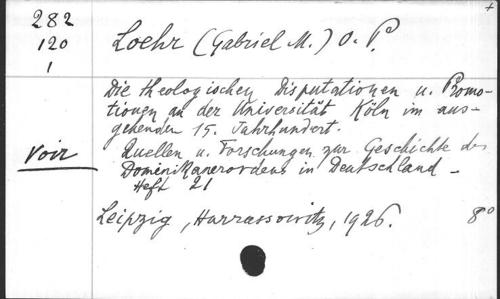 +
282
120
1
Loehr (Gabriel M.) O. P.
Die theologischen Disputationen u. Promo-
tionen an der Universität Köln im aus-
gehenden 15. Jahrhundert.
voir
Quellen u. Forschungen zur Geschichte des
Dominikanerordens in Deutschland -
Heft 21
Leipzig, Harrassowitz, 1926. 8°